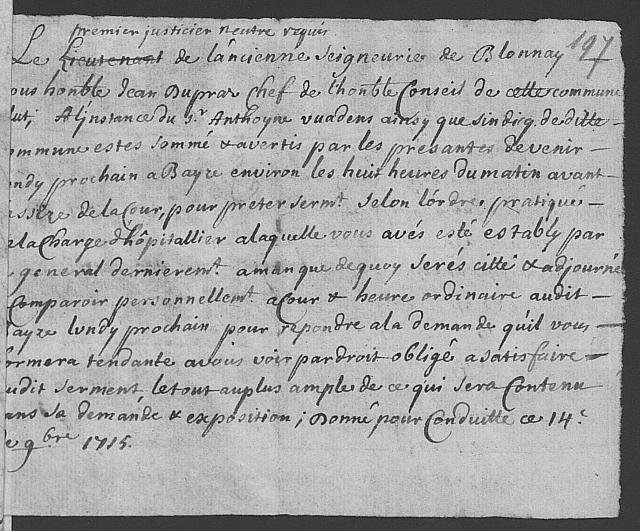 premier justicier neutre requis
197
Le Lieutenant de lancienne Seigneurie de Blonnay
ous honble Jean Dupraz Chef de lhonble Conseil de cette commune
lut; Alinstance du Sr Anthoyne vuadens ainsy que sindiq. de ditte
ommune estes sommé & avertis par les presantes devenir
undy prochain a Bayze environ les huit heures du matin avant
assize de la Cour, pour preter sermt. selon lordre, pratiqué
elacharge dhôpitallier a laquelle vous avés esté estably par
general dernieremt. a manque dequoy serés citté & adjourné
Comparoir personnellemt. a Cour & heure ordinaire audit
ayze lundy prochain pour repondre ala demande quil vous
ormera tendante a vous voir par droit obligé a satisfaire
udit serment, le tout au plus ample de ce qui sera Contenu
ans sa demande & exposition; Donné pour Conduitte ce 14e
e 9bre 1715.